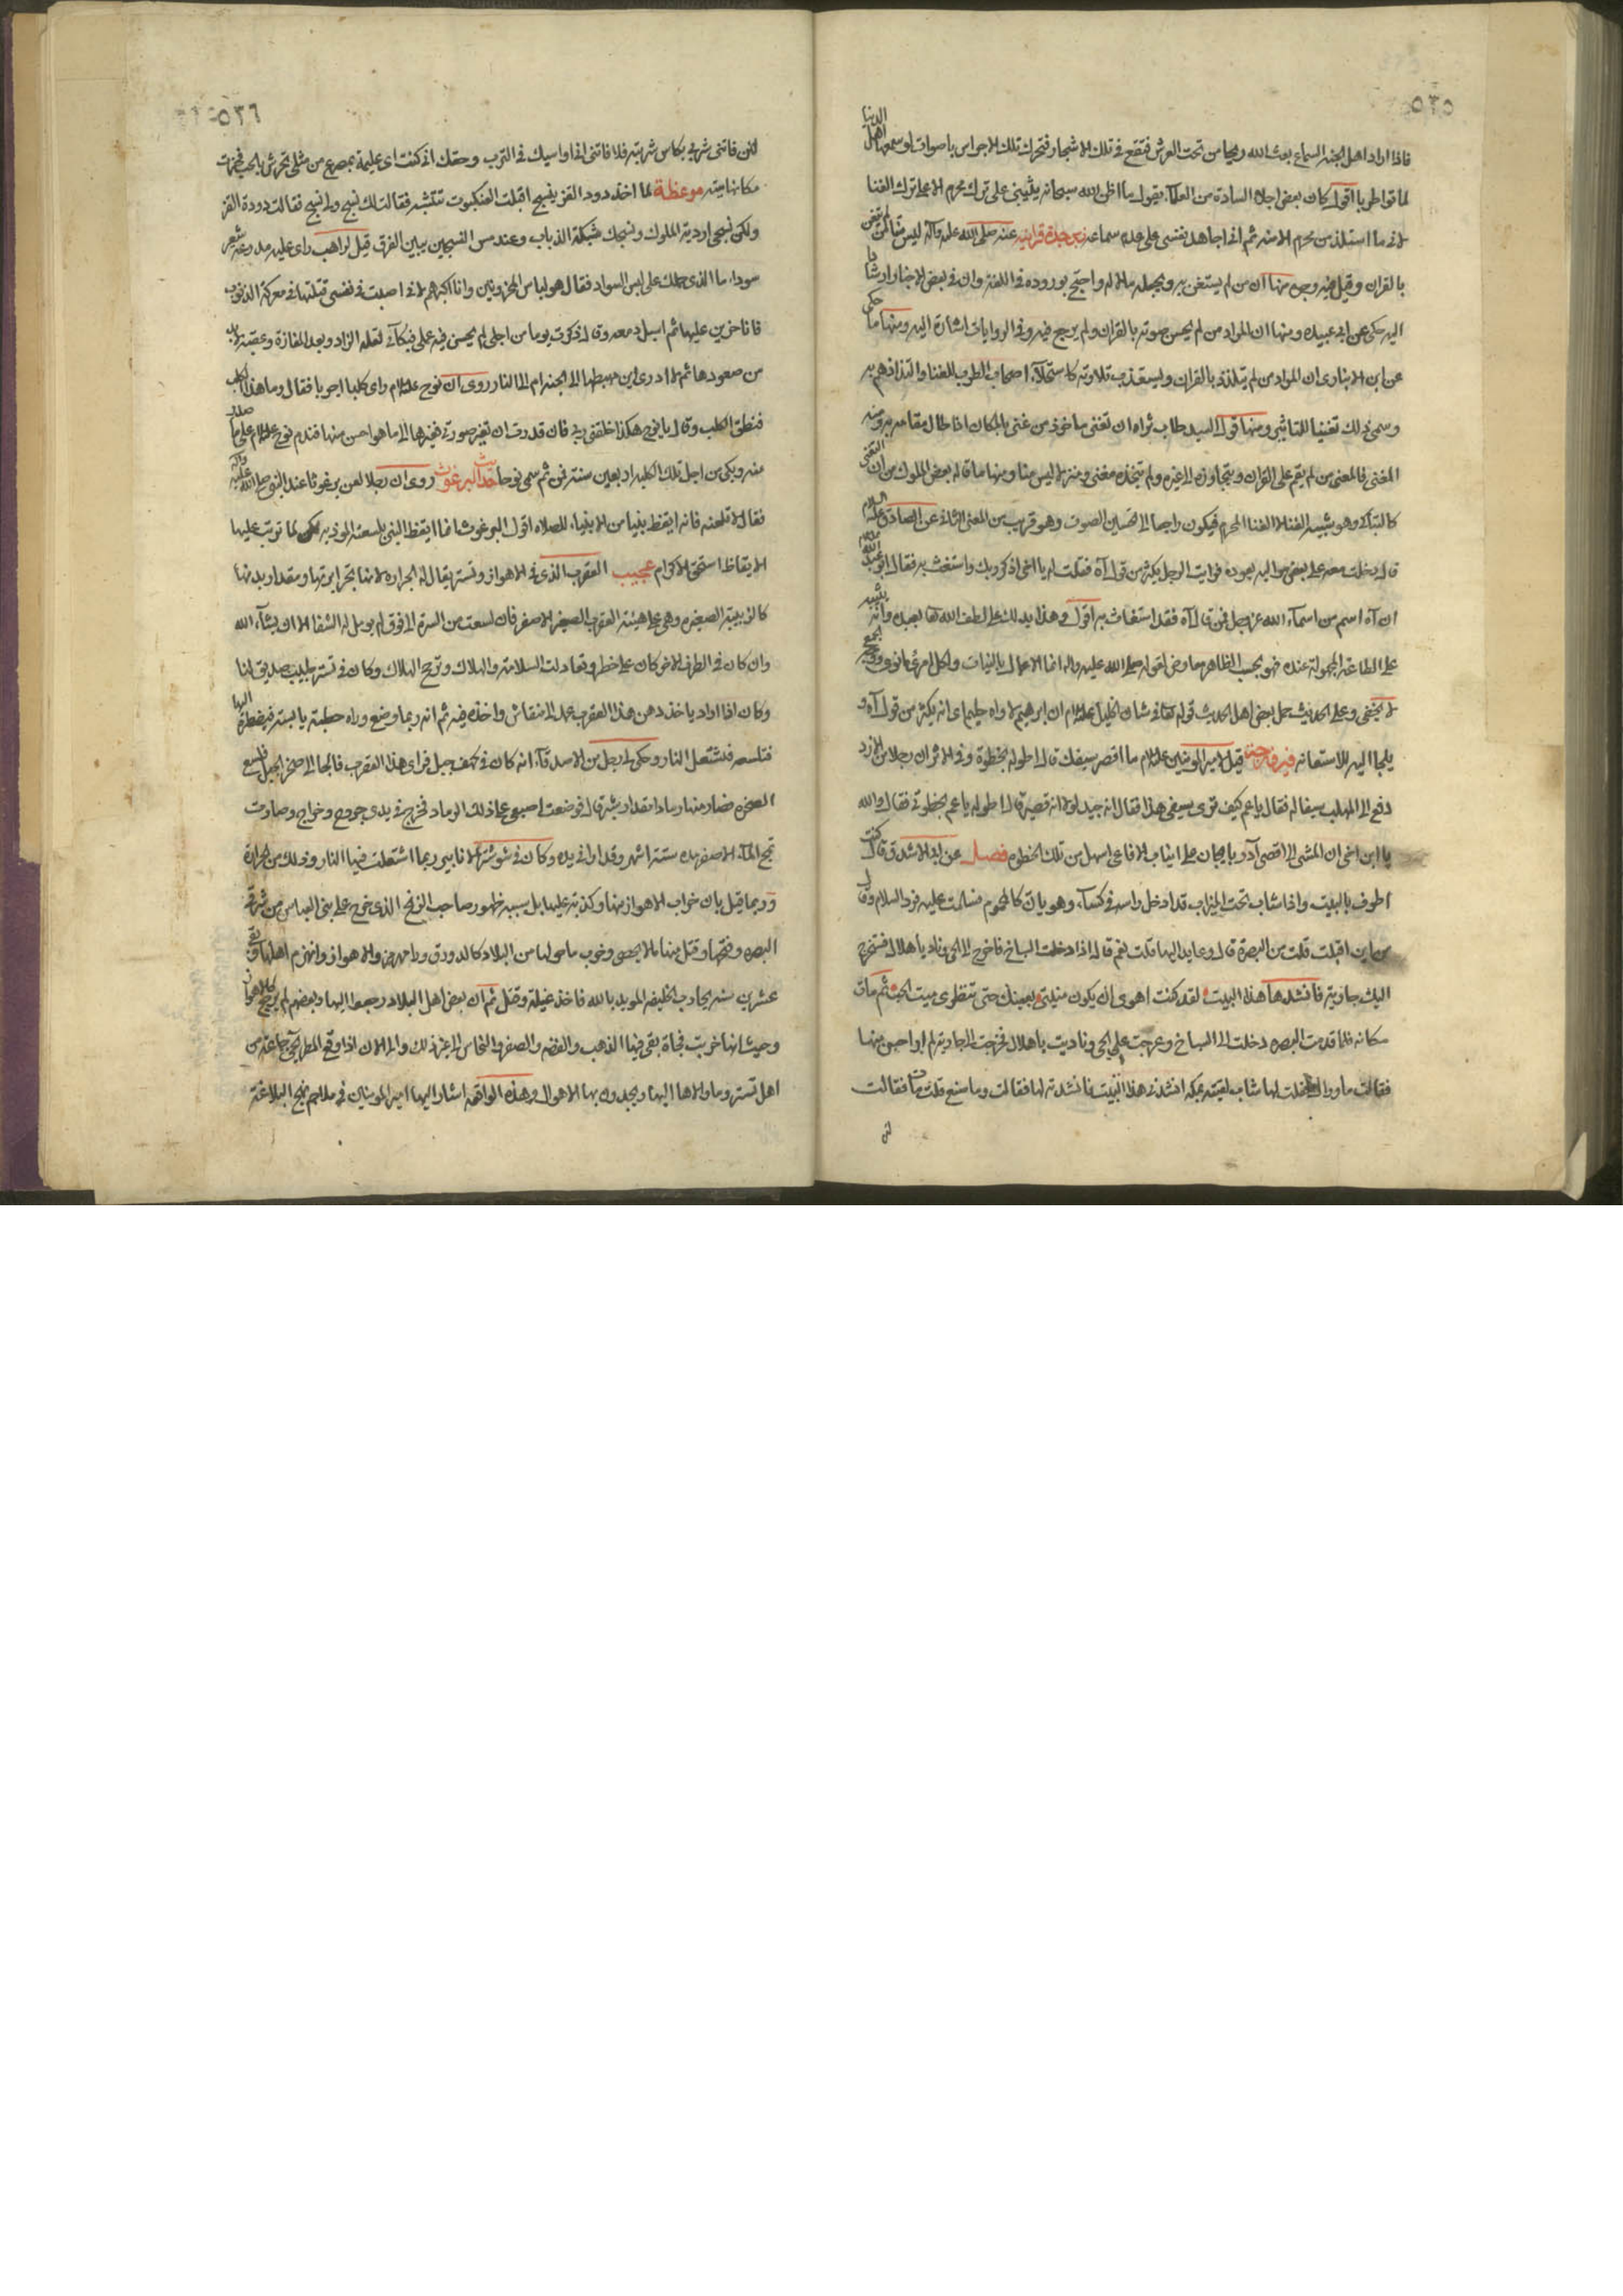 ٥٣٥
فاذا اراد اهل الجنه السماع بعث الله ريحا من تحت العرش فتقع في تلك الاشجار فتحرك تلك الاجراس باصوات لو سمعها اهل الدنيا
لماتوا طربا اقول كان بعض اجلاء السادة من العلماء يقول ما اظن الله سبحانه يثيبني على ترك محرم الا على ترك الغنا
لاني ما استلذ من محرم الا منه ثم اني اجاهد نفسي على عدم سماعه عنه صلى الله عليه وآله ليس منا من لم يتغن
بالقران وقيل فيه وجوه منها ان من لم يستغن به ويجعله مالا له واحتج بوروده في اللغة وان في بعض الاخبار ارشادا
اليه حكى عن ابي عبيده ومنها ان المراد من لم يحسن صوته بالقران ولم يرجع فيه وفي الروايات اشارة اليه ومنها ما حكى
عن ابن الانباري ان المراد من لم يتلذذ بالقران ويستعذب تلاوته كاستحلاء اصحاب الطرب للغنا والتذاذهم به
وسمي ذلك تغنيا للتاثير ومنها قول السيد طاب ثراه ان تغنى ماخوذ من غنى بالمكان اذا طال مقامه به ومنه
المغنى فالمعنى من لم يقم على القران ويتجاوزه الى غيره ولم يتخذه مغنى ومنزلا ليس منا ومنها ما قاله بعض الملوك من ان التغني
كالتباكي وهو شبيه الغنا لا الغنا المحرم فيكون راجعا الى تحسين الصوت وهو قريب من المعنى الثاني عن الصادق عليه السلام
قال دخلت معه على بعض مواليه يعوده فرايت الرجل يكثر من قول آه فقلت له يا اخي اذكر ربك واستغث به فقال ابو عبد الله
ان آه اسم من اسماء الله عز وجل فمن قال آه فقد استغاث به اقول وهذا يدلك على لطف الله تعالى بعبده وانه يثيبه
على الطاعة المجهولة عنده فهو بحسب الظاهر معارض لقوله صلى الله عليه واله انما الاعمال بالنيات ولكل امرئ ما نوى ووجه الجمع
لا يخفى وعلى الحديث حمل بعض اهل الحديث قوله تعالى في شان الخليل عليه السلام ان ابرهيم لاواه حليم اي انه يكثر من قول آه و
يلجا اليه للاستعانه قيل لامير المومنين عليه السلام ما اقصر سيفك قال اطوله بخطوة وفي الاثر ان رجلا من الازد
دفع الى المهلب سيفا له فقال يا عم كيف ترى سيفي هذا فقال انه جيد لولا انه قصير قال اطوله يا عم بخطوتي فقال والله
يا ابن اخي ان المشي الى اقصى آذربايجان على انياب الافاعي اسهل من تلك الخطوه فصل عن قال كنت
اطوف بالبيت واذا شاب تحت الميزاب قد ادخل راسه في كساء وهو يان كالمحموم فسلمت عليه فرد السلام وقال
من اين اقبلت قلت من البصرة قال وعايد اليها قلت نعم قال اذا دخلت النباج فاخرج الى الحي وناد يا هلال فتخرج
اليك جارية فانشدها هذا البيت لقد كنت اهوى ان يكون منيتي بعينك حتى تنظري ميت الحب ثم مات
مكانه فلما قدمت البصره دخلت الى النباج وعرجت على الحي وناديت يا هلال فخرجت الى جارية لم ار احسن منها
فقالت ما وراك فقلت لها شاب لقيته بمكه انشدني هذا البيت فانشدته لها فقالت وما صنع قلت مات فقالت
لئن
٥٣٦
لئن فاتني شربي بكاس شربته فلا فاتني اني اواسيك في الترب وحقك اني كنت اي عليمة بمصرع من مثلي تحرش بالحب فخرت
مكانها ميته موعظة لما اخذ دود القز ينسج اقبلت العنكبوت تتشبه فقالت لك نسج ولي نسج فقالت دودة القز
ولكن نسجي اردية الملوك ونسجك شبكة الذباب وعند مس النسيجين يبين الفرق قيل لراهب راى عليه مدرعة شعر
سوداء ما الذي حملك على لبس السواد فقال هو لباس المحزونين وانا اكبرهم لاني اصبت في نفسي قتلتها في معركة الذنوب
فانا حزين عليها ثم اسبل دمعه وقال ذكرت يوما من اجلي لم يحسن فيه عملي فبكائي لقلة الزاد وبعد المفازة وعقبة لا بد
من صعودها ثم لا ادري اين مهبطها الى الجنه ام الى النار روى ان نوح عليه السلام راى كلبا اجربا فقال وما هذا الكلب
فنطق الكلب وقال يا نوح هكذا خلقني ربي فان قدرت ان تغير صورتي فغيرها الى ما هو احسن منها فندم نوح عليه السلام على ما صدر
منه وبكى من اجل تلك الكلمه اربعين سنة فمن ثم سمي نوحا حديث البرغوث روى ان رجلا لعن برغوثا عند النبي صلى الله عليه واله
فقال لا تلعنه فانه ايقظ نبيا من الانبياء للصلاه اقول البرغوث انما ايقظ النبي بلسعته الموذيه لكن لما ترتب عليها
الايقاظ استحق الاكرام عجيب العقرب الذي في الاهواز وتستر يقال له الجراره لانها تجر ابرتها ومقدار بدنها
كالزبيبة الصغيره وهي على هيئة العقرب الصغير الاصفر فان لسعت من السرة الى فوق لم يوسل له الشفا الا ان يشاء الله
وان كان في الطرف الاخر كان على خطر وتعادلت السلامة والهلاك وترجح الهلاك وكان في تستر طبيب صديق لنا
وكان اذا اراد ياخذ دهن هذا العقرب عمد الى منقاش واخذه فيه ثم انه ربما وضع وراه حطبة يابسة فيضطره اليها
فتلسعه فتشتعل النار وحكى لي رجل من الاصدقاء انه كان في كهف جبل فراى هذا العقرب فالجا الى صخر الجبل فلسع
الصخره فصار منها رمادا مقدار شبر قال فوضعت اصبعي على ذلك الرماد فخرج في يدي جروح وخراج وصارت
تمج الماء الاصفر مدة ستة اشهر وقد اراني يده وكان في شوشتر ربما اشتعلت فيها النار وذلك من الحرارة
وربما قيل بان خراب الاهواز منها وكذبته عليها بل سببه ظهور صاحب الزنج الذي خرج على بني العباس من شرقي
البصره وفتحها وقتل منها ما لا يحصى وخرب ما حولها من البلاد كالدورق ورامهرمز والاهواز وانهزم اهلها وبقي
عشرين سنه يحارب الخليفه المويد بالله فاخذ غيلة وقتل ثم ان بعض اهل البلاد رجعوا اليها وبعضهم لم يرجع كالاهواز
وحيث انها خربت فجاة بقي فيها الذهب والفضه والصفر والنحاس الى غير ذلك والى الان اذا وقع المطر يجي جماعة من
اهل تستر وما والاها اليها ويجدون بها الاهوال وهذه الواقعه اشار اليها امير المومنين في ملاحم نهج البلاغة